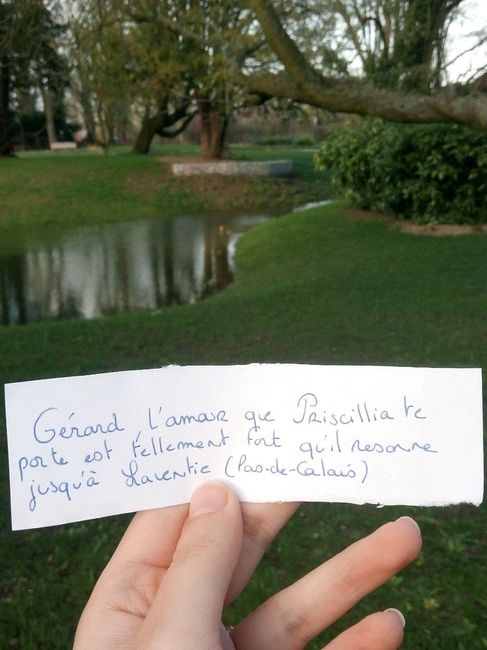 Gérard, l'amour que Priscillia te
porte est tellement fort qu'il résonne
jusqu'à Laventie (Pas-de-Calais)